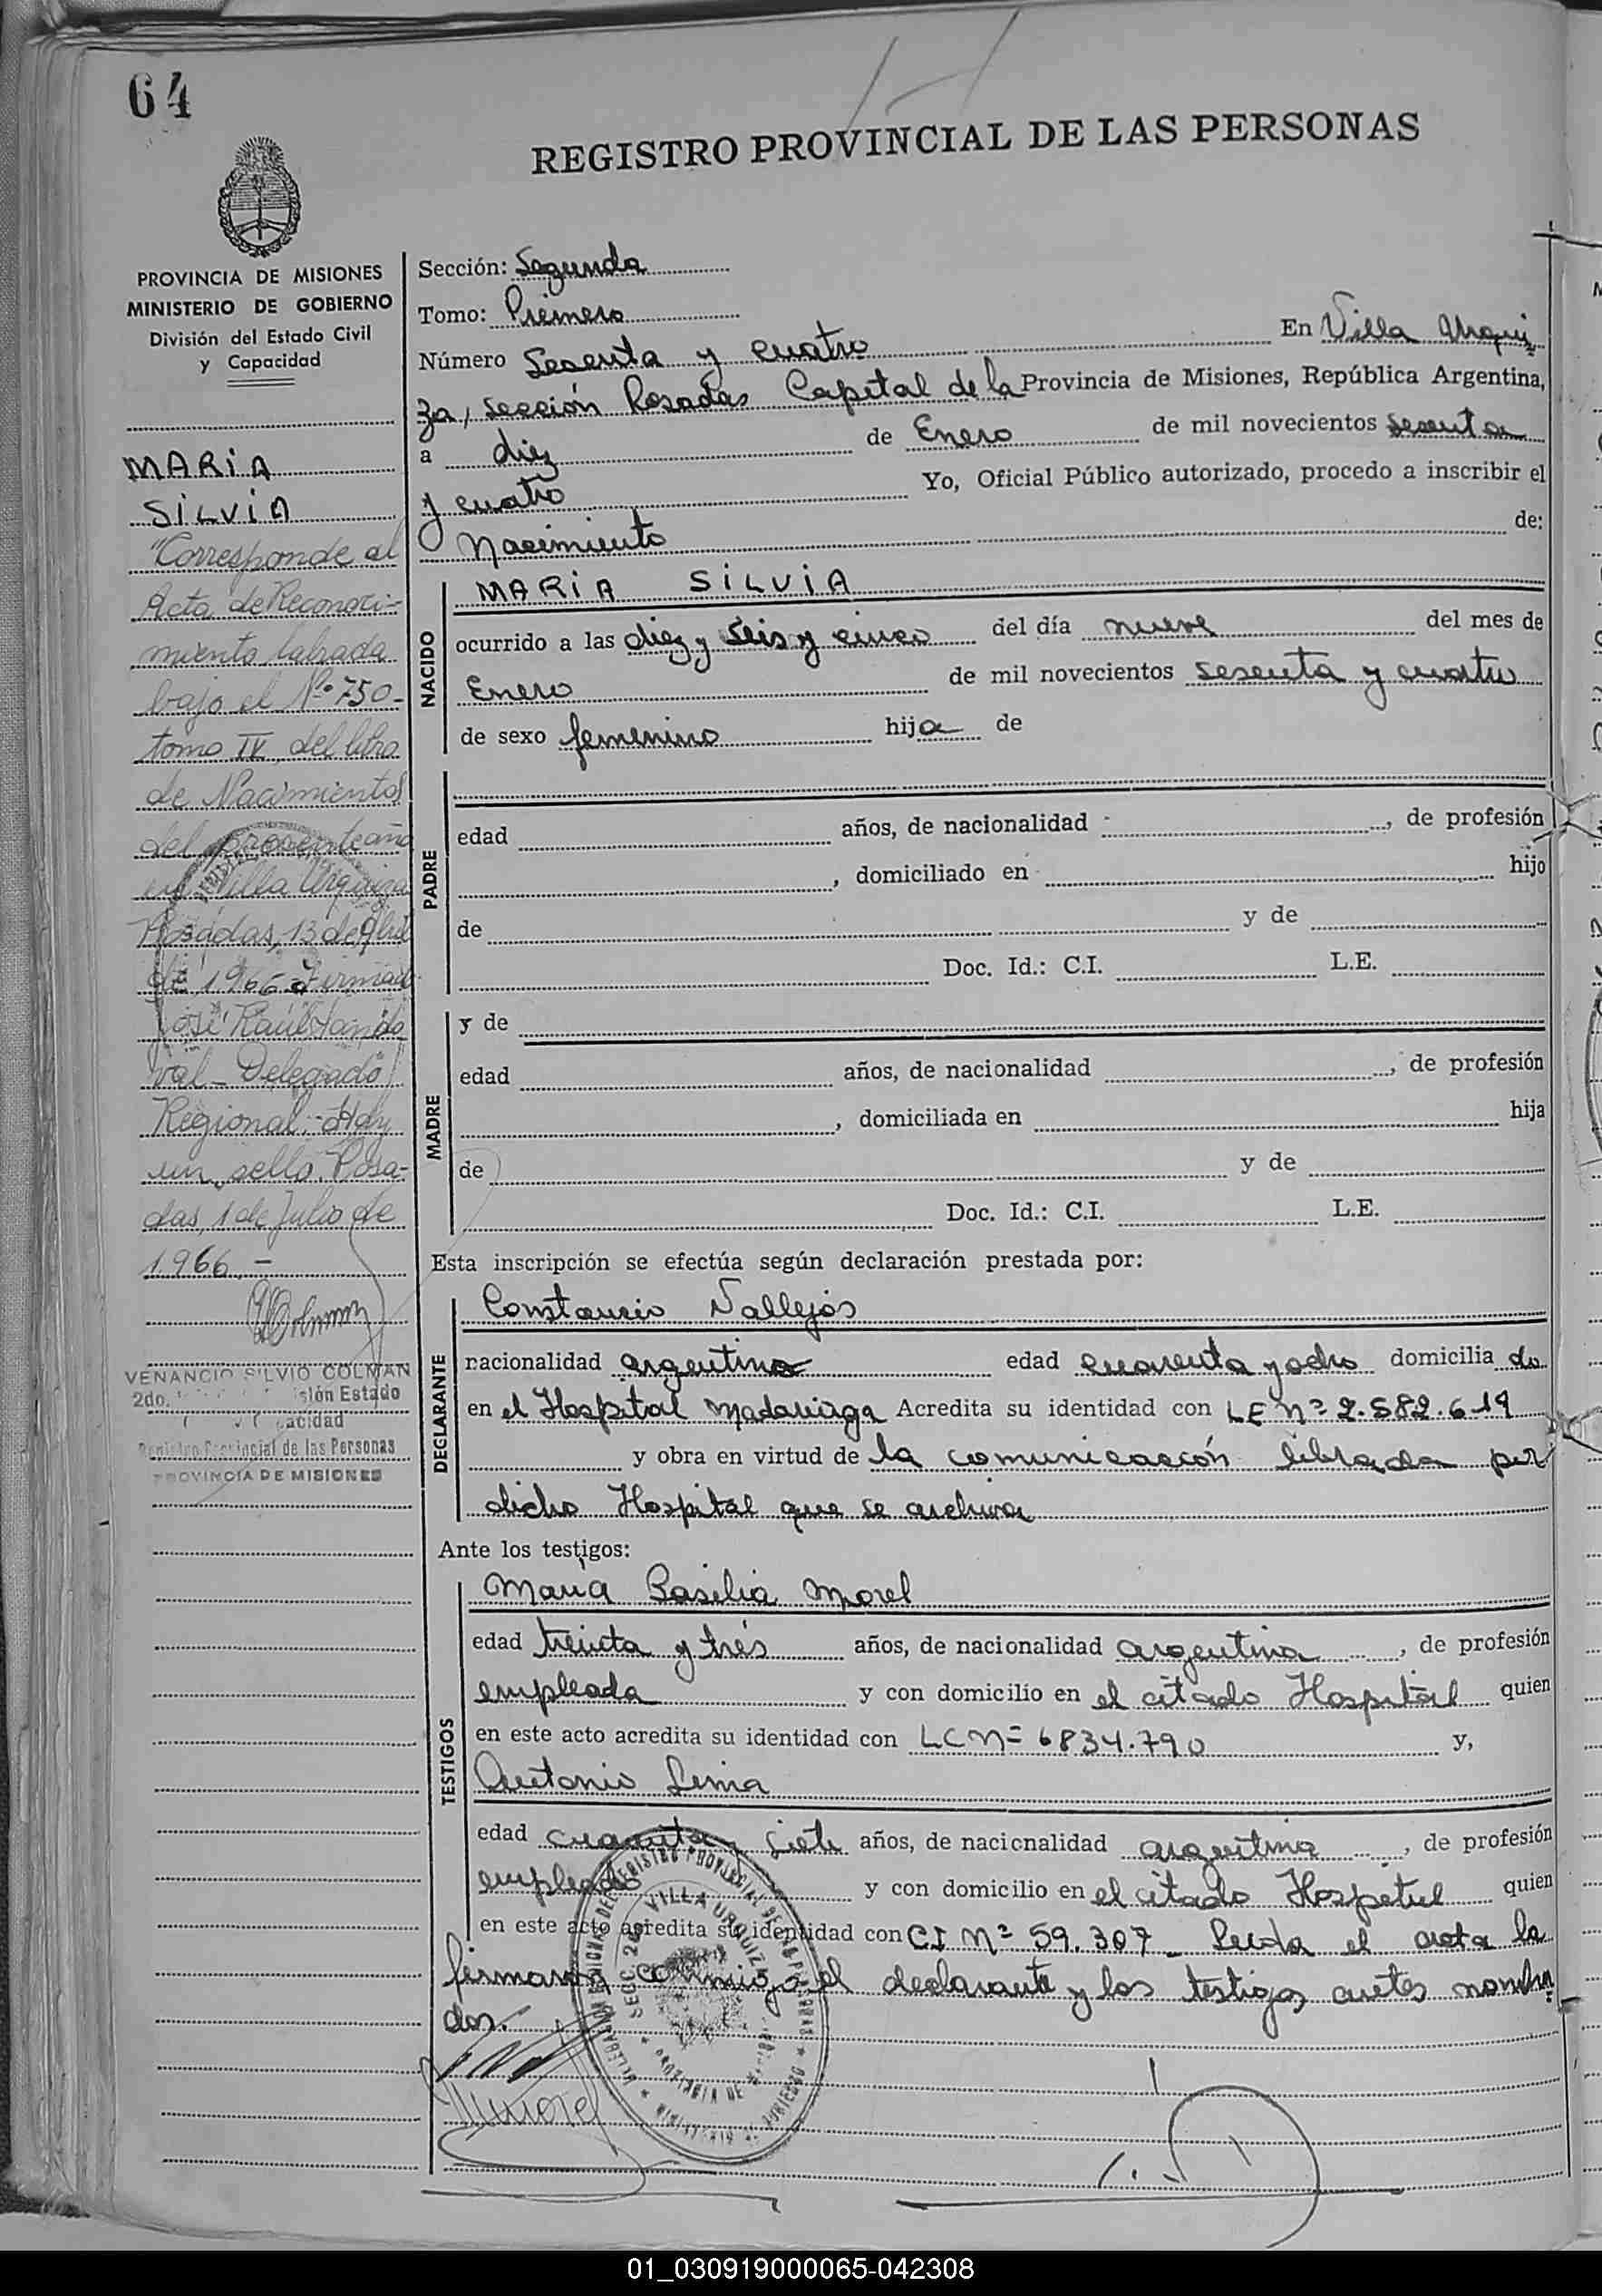 64
REGISTRO PROVINCIAL DE LAS PERSONAS
PROVINCIA DE MISIONES
MINISTERIO DE GOBIERNO
División del Estado Civil
y Capacidad
MARIA
SILVIA
"Corresponde al
Acta de Reconoci-
miento labrada
bajo el Nº 750-
tomo IV del libro
de Nacimientos
del presente año
en Villa Urquiza
Posadas, 13 de Abril
de 1966 Firmado
José Raúl Sando
val - Delegado
Regional. - Hay
un sello. Posa-
das, 1 de Julio de
1966 -
VENANCIO SILVIO COLMAN
2do. Estado
Registro Provincial de las Personas
PROVINCIA DE MISIONES
Sección: Segunda
Tomo: Primero
Número Sesenta y cuatro En Villa Urqui
za, sección Posadas Capital de la Provincia de Misiones, República Argentina,
a diez de Enero de mil novecientos sesenta
y cuatro Yo, Oficial Público autorizado, procedo a inscribir el
Nacimiento de:
NACIDO
MARIA SILVIA
ocurrido a las diez y seis y cinco del día nueve del mes de
Enero de mil novecientos sesenta y cuatro
de sexo femenino hija de
PADRE
edad años, de nacionalidad , de profesión
, domiciliado en hijo
de y de
Doc. Id.: C.I. L.E.
MADRE
y de
edad años, de nacionalidad , de profesión
, domiciliada en hija
de y de
Doc. Id.: C.I. L.E.
Esta inscripción se efectúa según declaración prestada por:
DECLARANTE
Constancio Vallejos
nacionalidad argentino edad cuarenta y ocho domicilia do
en el Hospital Madariaga Acredita su identidad con LE Nº 2.582.619
y obra en virtud de la comunicación librada por
dicho Hospital que se archiva
Ante los testigos:
TESTIGOS
Maria Basilia Morel
edad treinta y trés años, de nacionalidad argentina , de profesión
empleada y con domicilio en el citado Hospital quien
en este acto acredita su identidad con LC Nº 6834.790 y,
Antonio Lima
edad cuarenta y siete años, de nacionalidad argentina , de profesión
empleado y con domicilio en el citado Hospital quien
en este acto acredita su identidad con CI Nº 59.307 - Leida el acta la
firmaron conmigo el declarante y los testigos antes nombra
dos.
VILLA URQUIZA
01_030919000065-042308